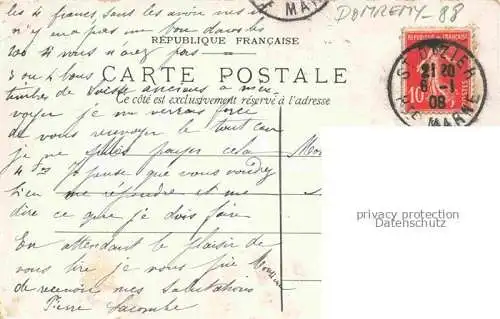 les 4 francs sans les avoir mis et
n'y a pas un bon dans les
200 si vous n'avez pas
DOMREMY-88
RÉPUBLIQUE FRANÇAISE
CARTE POSTALE
Ce côté est exclusivement réservé à l'adresse
3 ou 4 bons
timbres de Suisse anciens à m'en-
voyer je me verrais forcé
de vous renvoyer le tout car
je me fais payer cela
4 frs je pense que vous voudrez
bien me répondre et me
dire ce que je dois faire
En attendant le plaisir de
vous lire je vous prie Monsieur
de recevoir mes salutations
Pierre Lacombe
REPUBLIQUE FRANÇAISE
10
ST DIZIER
21 20
6 - 1
08
HTE MARNE
MARNE
privacy protection
Datenschutz